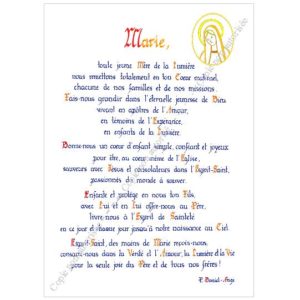 Marie,
toute jeune Mère de la Lumière
nous remettons totalement en ton Coeur maternel,
chacune de nos familles et de nos missions.
Fais-nous grandir dans l'éternelle jeunesse de Dieu
vivant en apôtres de l'Amour,
en témoins de l'Espérance,
en enfants de la Lumière.
Donne-nous un coeur d'enfant, simple, confiant et joyeux
pour être, au coeur même de l'Eglise,
sauveurs avec Jésus et consolateurs dans l'Esprit-Saint,
passionnés du monde à sauver.
Enfante et protège en nous ton Fils,
avec Lui et en Lui offre-nous au Père,
livre-nous à l'Esprit de Sainteté
en ce jour et chaque jour jusqu'à notre naissance au Ciel.
Esprit-Saint, des mains de Marie reçois-nous,
consacre-nous dans la Vérité et l'Amour, la Lumière et la Vie
pour la seule joie du Père et de tous nos frères !
P. Daniel-Ange